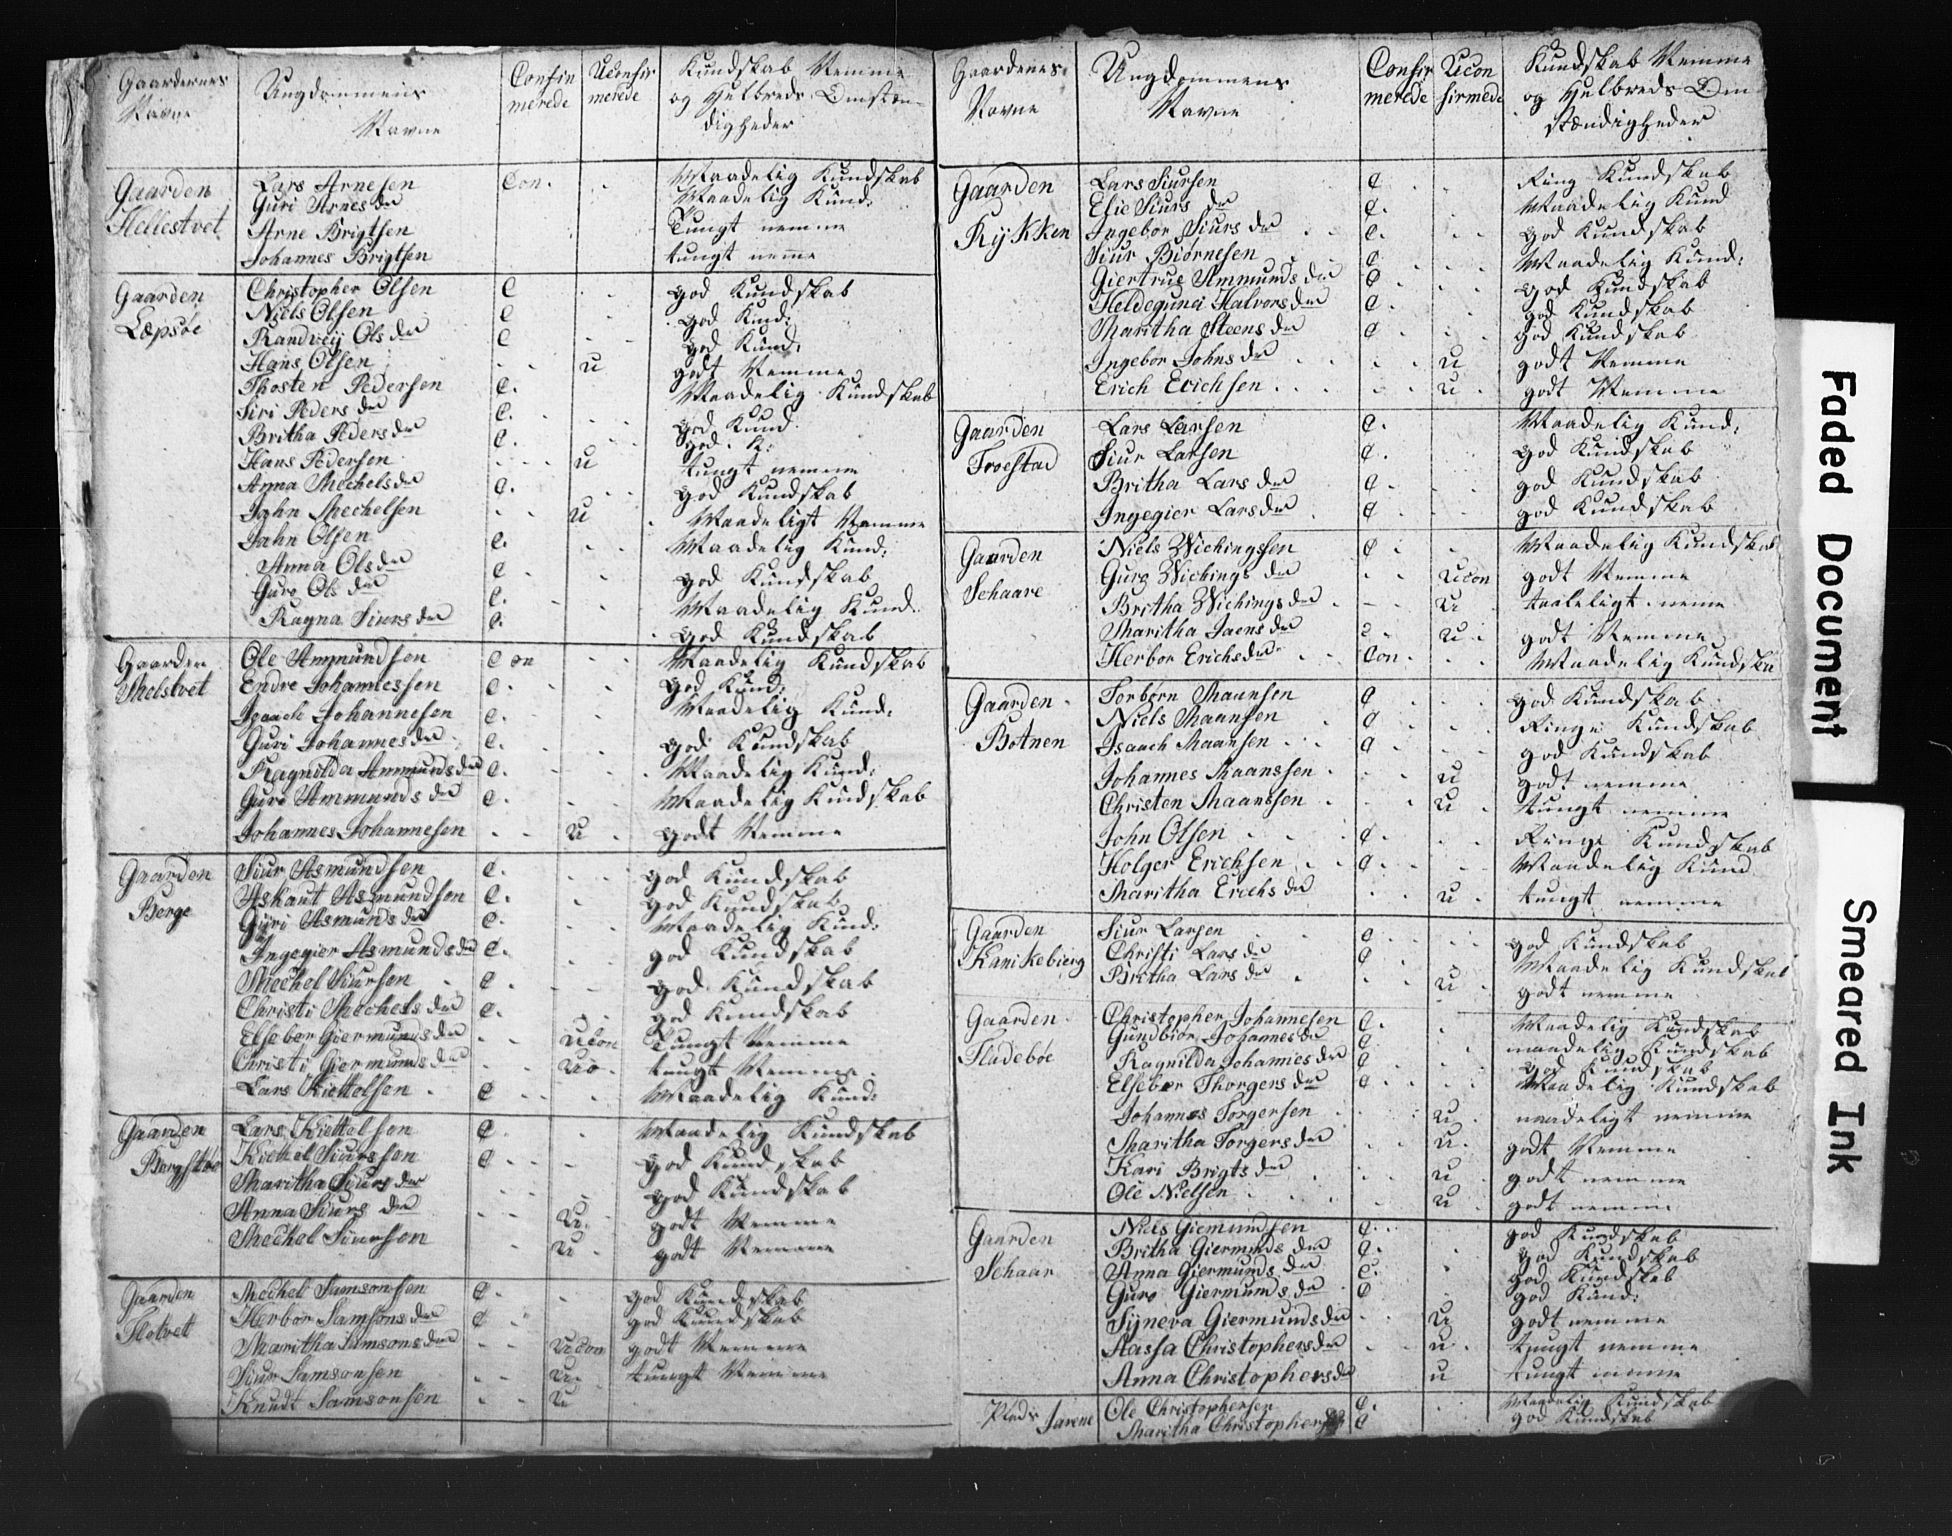 Gaardernes Navne | Ungdommens Navne | Confirmerede | Uconfirmerede | Kundskab Nemme og Helbreds Omstændigheder
Gaarden Hellestvet
Lars Arnesen | Con. | Maadelig Kundskab
Guri Arnesdr | Maadelig Kund:
Arne Brigtsen | Tungt nemme
Johannes Brigtsen | tungt nemme
Gaarden Læpsøe
Christopher Olsen | C | god Kundskab
Niels Olsen | C | god Kund:
Randveij Olsdr | C | god Kund:
Hans Olsen | U | godt Nemme
Thosten Pedersen | C. | Maadelig Kundskab
Siri Pedersdr | C. | god Kund
Britha Pedersdr | C. | god K:
Hans Pedersen | U | tungt nemme
Anna Mechelsdr | C. | god Kundskab
John Mechelsen | U | Maadeligt Nemme
John Olsen | C. | Maadelig Kund:
Anna Olsdr | C | god Kundskab
Guro Olsdr | C. | Maadelig Kund.
Ragna Siursdr | C. | god Kundskab
Gaarden Melstvet
Ole Ammundsen | Con | Maadelig Kundskab
Endre Johannessen | C. | god Kund:
Isaach Johannesen | C. | Maadelig Kund:
Guri Johannesdr | C. | god Kundskab
Ragnilda Ammundsdr | C. | Maadelig Kund:
Guro Ammundsdr | C. | Maadelig Kundskab
Johannes Johannesen | U | godt Nemme
Gaarden Berge
Siur Asmundsen | C. | god Kundskab
Askaut Asmundsen | C. | god Kundskab
Guri Asmundsdr | C. | Maadelig Kund:
Ingegier Asmundsdr | C. | god Kundskab
Mechel Siursen | C | god Kundskab
Christi Mechelsdr | C. | god Kundskab
Elsebor Giermundsdr | Ucon | Tungt Nemme
Christi Giermundsdr | Uo. | tungt Nemme
Lars Kiettelsen | C | Maadelig Kund:
Gaarden
Lars Kiettelsen | C. | Maadelig Kundskab
Kiettel Siursen | C | god Kundskab
Maritha Siursdr | god Kundskab
Anna Siursdr | U. | godt Nemme
Mechel Siursen | U | godt Nemme
Gaarden Flotvet
Mechel Samsonsen | C. | god Kundskab
Herbor Samsonsdr | C | god Kundskab
Maritha Samsonsdr | Ucon | godt Nemme
Siur Samsonsen | U. | tungt Nemme
Knudt Samsonsen | U
Gaardenes Navne | Ungdommens Navne | Confirmerede | Uconfirmede | Kundskab Nemme og Helbreds Omstændigheder
Gaarden Rykken
Lars Siursen | C | Ring Kundskab
Elie Siursdr | C. | Maadelig Kund
Ingebor Siursdr | C. | god Kundskab
Siur Biørnesen | C | Maadelig Kund:
Giertrus Ammundsdr | C | god Kundskab
Heldegunei Halvorsdr | C. | god Kundskab
Maritha Steensdr | C | god Kundskab
Ingebor Johnsdr | U | godt Nemme
Erich Erichsen | U. | godt Nemme
Gaarden Troestad
Lars Larsen | C. | Maadelig Kund:
Siur Larsen | C. | god Kundskab
Britha Larsdr | C | god Kundskab
Ingegier Larsdr | C | god Kundskab
Gaarden Schaare
Niels Wichingssen | C | Maadelig Kundskab
Guro Wichingsdr | Ucon | godt Nemme
Britha Wichingsdr | U | taaleligt neme
Maritha Jaensdr | U. | godt Nemme
Herbor Erichsdr | Con. | Maadelig Kundska
Gaarden Botnen
Torbørn Maansen | C | god Kundskab
Niels Maansen | C | Ringe Kundskab
Isaach Maansen | C | god Kundskab
Johannes Maanssen | U | godt nemme
Christen Maanssen | U | tungt nemme
John Olsen | C | Ringe Kundskab
Holger Erichsen | C. | Maadelig Kund
Maritha Erichsdr | U | tungt nemme
Gaarden Kanikebierg
Siur Larsen | C | god Kundskab
Christi Larsdr | C | Maadelig Kundskab
Britha Larsdr | U | godt nemme
Gaarden Fladebøe
Christopher Johannesen | C. | Maadelig Kundskab
Gundbior Johannesdr | C | maadelig Kundskab
Ragnilda Johannesdr | C | god Kundskab
Elsebor Thorgersdr | C | Maadelig Kundskab
Johannes Torgersen | U. | maadeligt nemme
Maritha Torgersdr | U. | godt Nemme
Kari Brigtsdr | U | godt nemme
Ole Nielsen | U | godt nemme
Gaarden Schaar
Niels Giemundsen | C. | god Kundskab
Britha Giermndsdr | C. | god Kundskab
Anna Giermundsdr | C. | god Kundskab
Guro Giermundsdr | C | god Kund:
Syneva Giermundsdr | U | godt nemme
Aassa Christophersdr | U. | tungt nemme
Anna Christophersdr | U | tungt nemme
Plads Jarene
Ole Christophersen | C. | Maadelig Kundskab
Maritha Christophersdr | C | god Kundskab
Faded Document
Smeared Ink